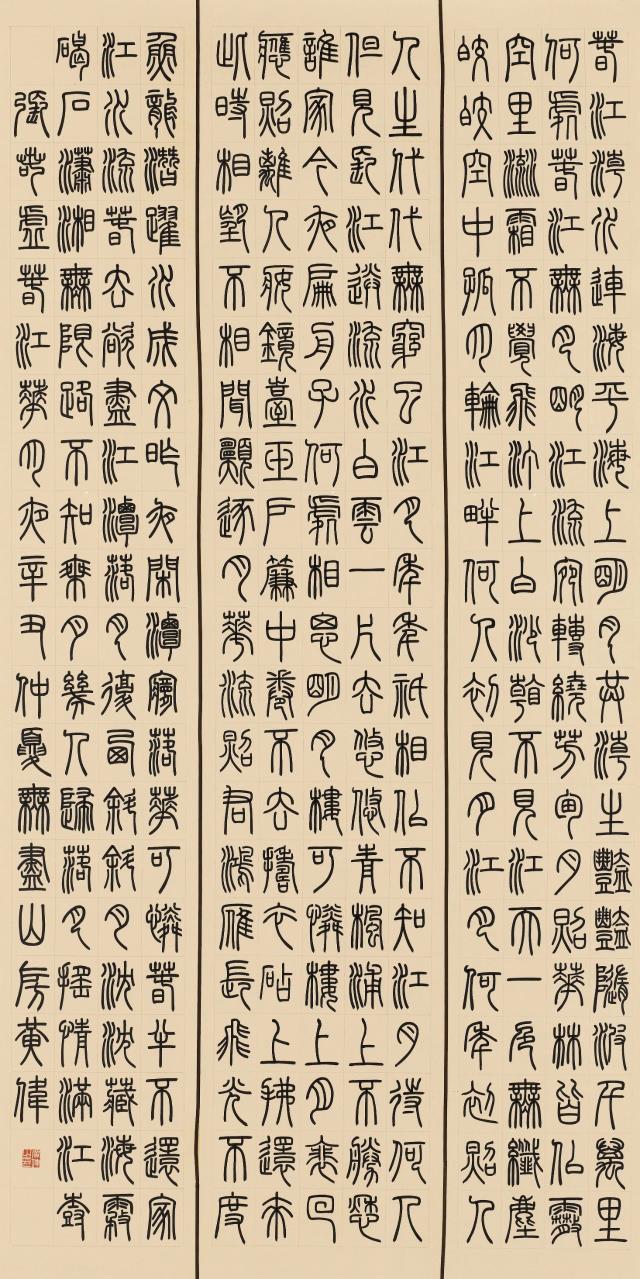 春江潮水連海平海上明月共潮生灩灩隨波千萬里
何處春江無月明江流宛轉繞芳甸月照華林皆似霰
空里流霜不覺飛汀上白沙看不見江天一色無纖塵
皎皎空中孤月輪江畔何人初見月江月何年初照人
人生代代無窮已江月年年祇相似不知江月待何人
但見長江送流水白雲一片去悠悠青楓浦上不勝愁
誰家今夜扁舟子何處相思明月樓可憐樓上月裴回
應照離人妝鏡臺玉戶簾中卷不去擣衣砧上拂還來
此時相望不相聞願逐月華流照君鴻雁長飛光不度
魚龍潛躍水成文昨夜閑潭夢落華可憐春半不還家
江水流春去欲盡江潭落月復西斜斜月沈沈藏海霧
碣石瀟湘無限路不知乘月幾人歸落月搖情滿江樹
張若虛春江華月夜辛丑仲夏無盡山房黃偉